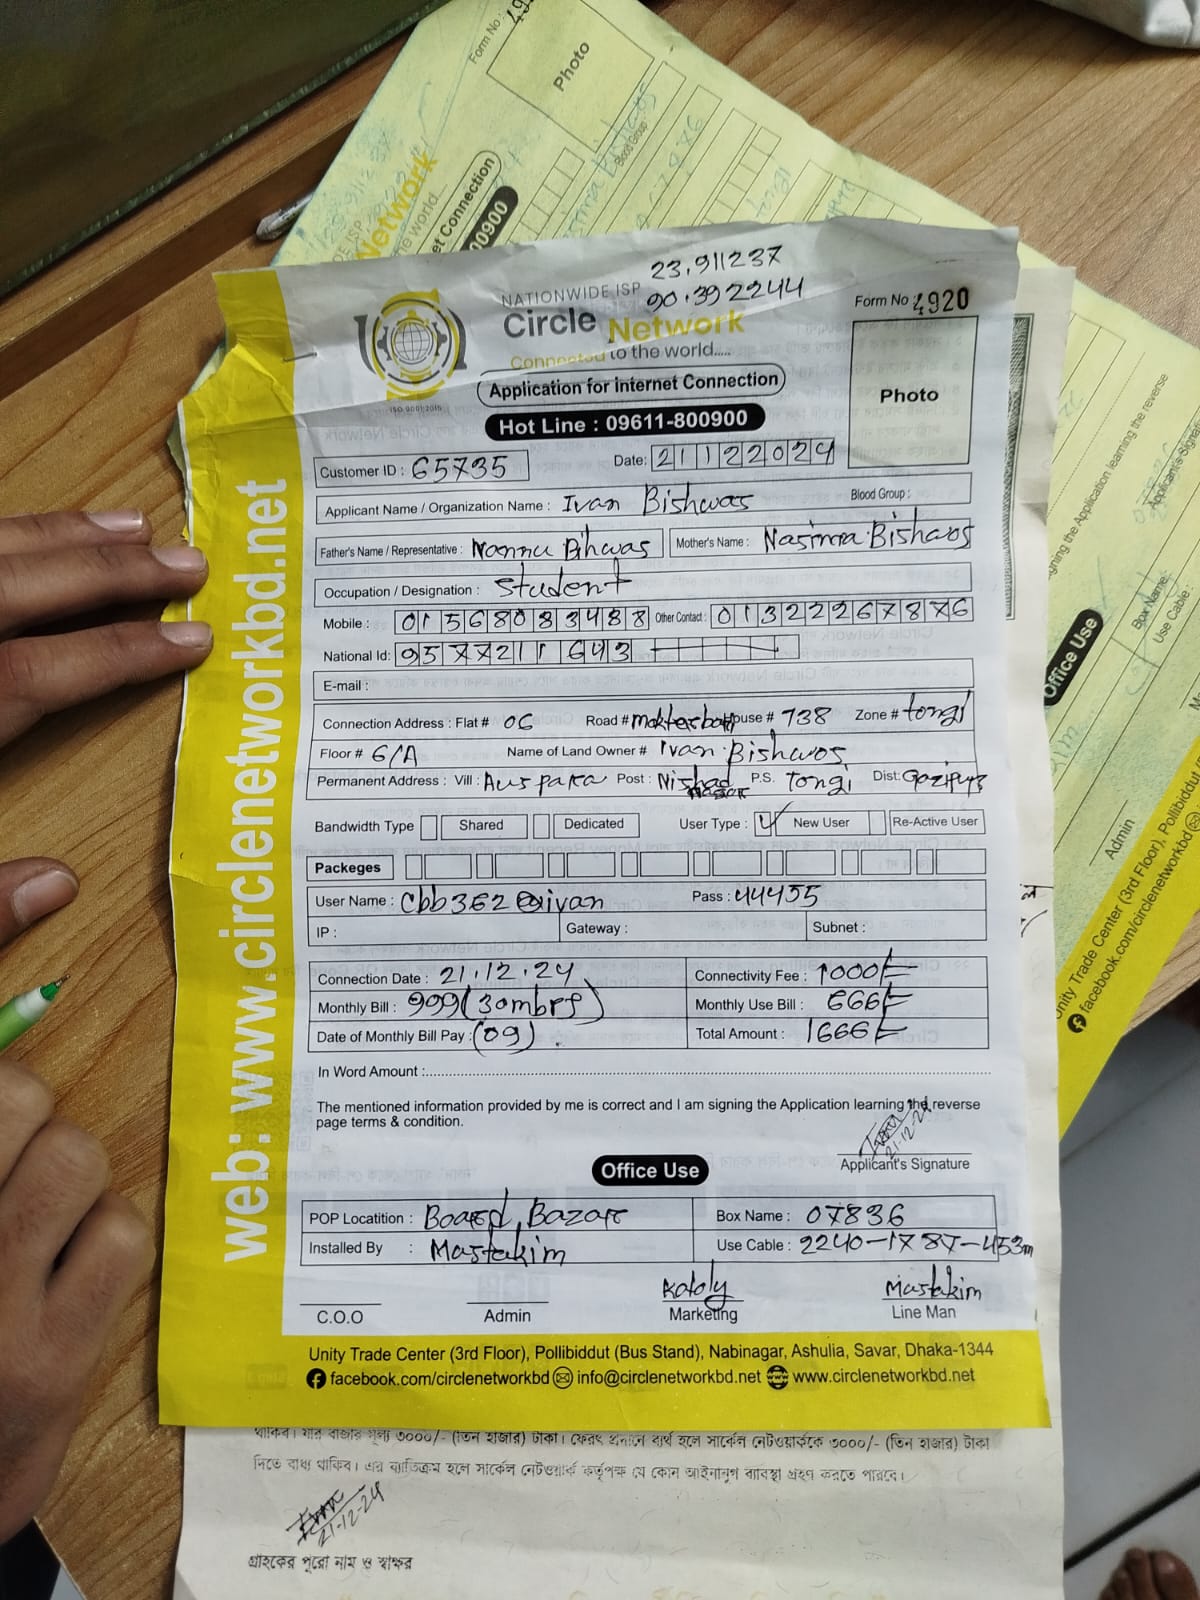 23.911237
90.392244
NATIONWIDE ISP
Circle Network
Connected to the world.....
Form No : 4920
Photo
Application for internet Connection
Hot Line : 09611-800900
ISO 9001:2015
Customer ID : 65735
Date: 21122024
Applicant Name / Organization Name : Ivan Bishwas Blood Group :
Father's Name / Representative : Nannu Bihwas Mother's Name : Nasima Bishwos
Occupation / Designation : Student
Mobile : 01568033488 Other Contact : 01322267876
National Id: 9577211643
E-mail :
Connection Address : Flat # 06 Road # House # 738 Zone # tongi
Floor # 6/A Name of Land Owner # Ivan Bishwos
Permanent Address : Vill : Auspara Post : Nishad P.S. Tongi Dist: Gazipur
Bandwidth Type Shared Dedicated User Type : New User Re-Active User
Packeges
User Name : Cbb362@ivan Pass : 44455
IP : Gateway : Subnet :
Connection Date : 21.12.24 Connectivity Fee : 1000/=
Monthly Bill : 999 (30mbps) Monthly Use Bill : 666/=
Date of Monthly Bill Pay : (09) Total Amount : 1666/=
In Word Amount :
The mentioned information provided by me is correct and I am signing the Application learning the reverse
page terms & condition.
21-12-24
Applicant's Signature
Office Use
POP Locatition : Board Bazar Box Name : 07836
Installed By : Mastakim Use Cable : 2240-1787-453m
Mastakim
C.O.O Admin Marketing Line Man
Unity Trade Center (3rd Floor), Pollibiddut (Bus Stand), Nabinagar, Ashulia, Savar, Dhaka-1344
facebook.com/circlenetworkbd info@circlenetworkbd.net www.circlenetworkbd.net
web: www.circlenetworkbd.net
থাকিব। যার বাজার মূল্য ৩০০০/- (তিন হাজার) টাকা। ফেরৎ প্রদানে ব্যর্থ হলে সার্কেল নেটওয়ার্ককে ৩০০০/- (তিন হাজার) টাকা
দিতে বাধ্য থাকিব। এর ব্যতিক্রম হলে সার্কেল নেটওয়ার্ক কর্তৃপক্ষ যে কোন আইনানুগ ব্যবস্থা গ্রহণ করতে পারবে।
21-12-24
গ্রাহকের পূরো নাম ও স্বাক্ষর
Form No :
Photo
Blood Group :
Network
00900
Office Use
Box Name:
Use Cable :
Admin
Unity Trade Center (3rd Floor), Pollibiddut
facebook.com/circlenetworkbd